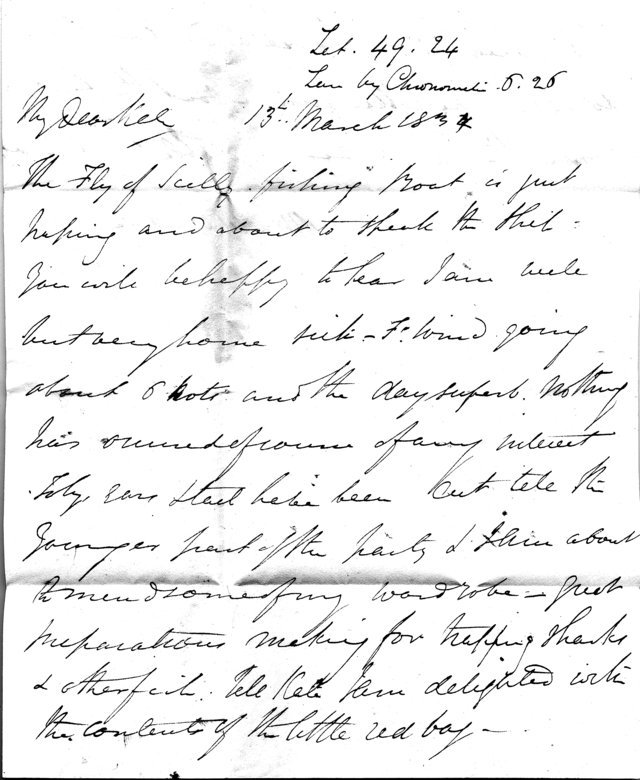 Lat. 49. 24
Lon by Chronometer 6. 26
My Dear Kel 13th March 1834
The Fly of Scilly fishing Boat is just
passing and about to speak the Ship -
You will be happy to hear I am well
but very home sick - Fr. Wind going
about 6 knots and the day superb. Nothing
has occurred of course of any interest
Toby's ears & tail have been cut tell the
Younger part of the party & I am about
to mend some of my wardrobe - great
preparations making for trapping sharks
& other fish. Tell Kate I am delighted with
the contents of the little red bag -